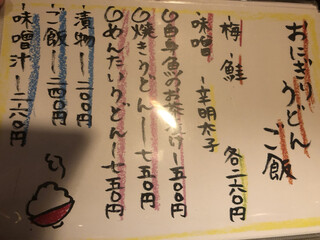 おにぎり
うどん
ご飯
梅・鮭
各二六〇円
味噌・辛明太子
◎白身魚のお茶漬け―七五〇円
◎焼きうどん―七五〇円
◎めんたいうどん―七五〇円
・漬物―三〇〇円
・ご飯―二四〇円
・味噌汁―二六〇円